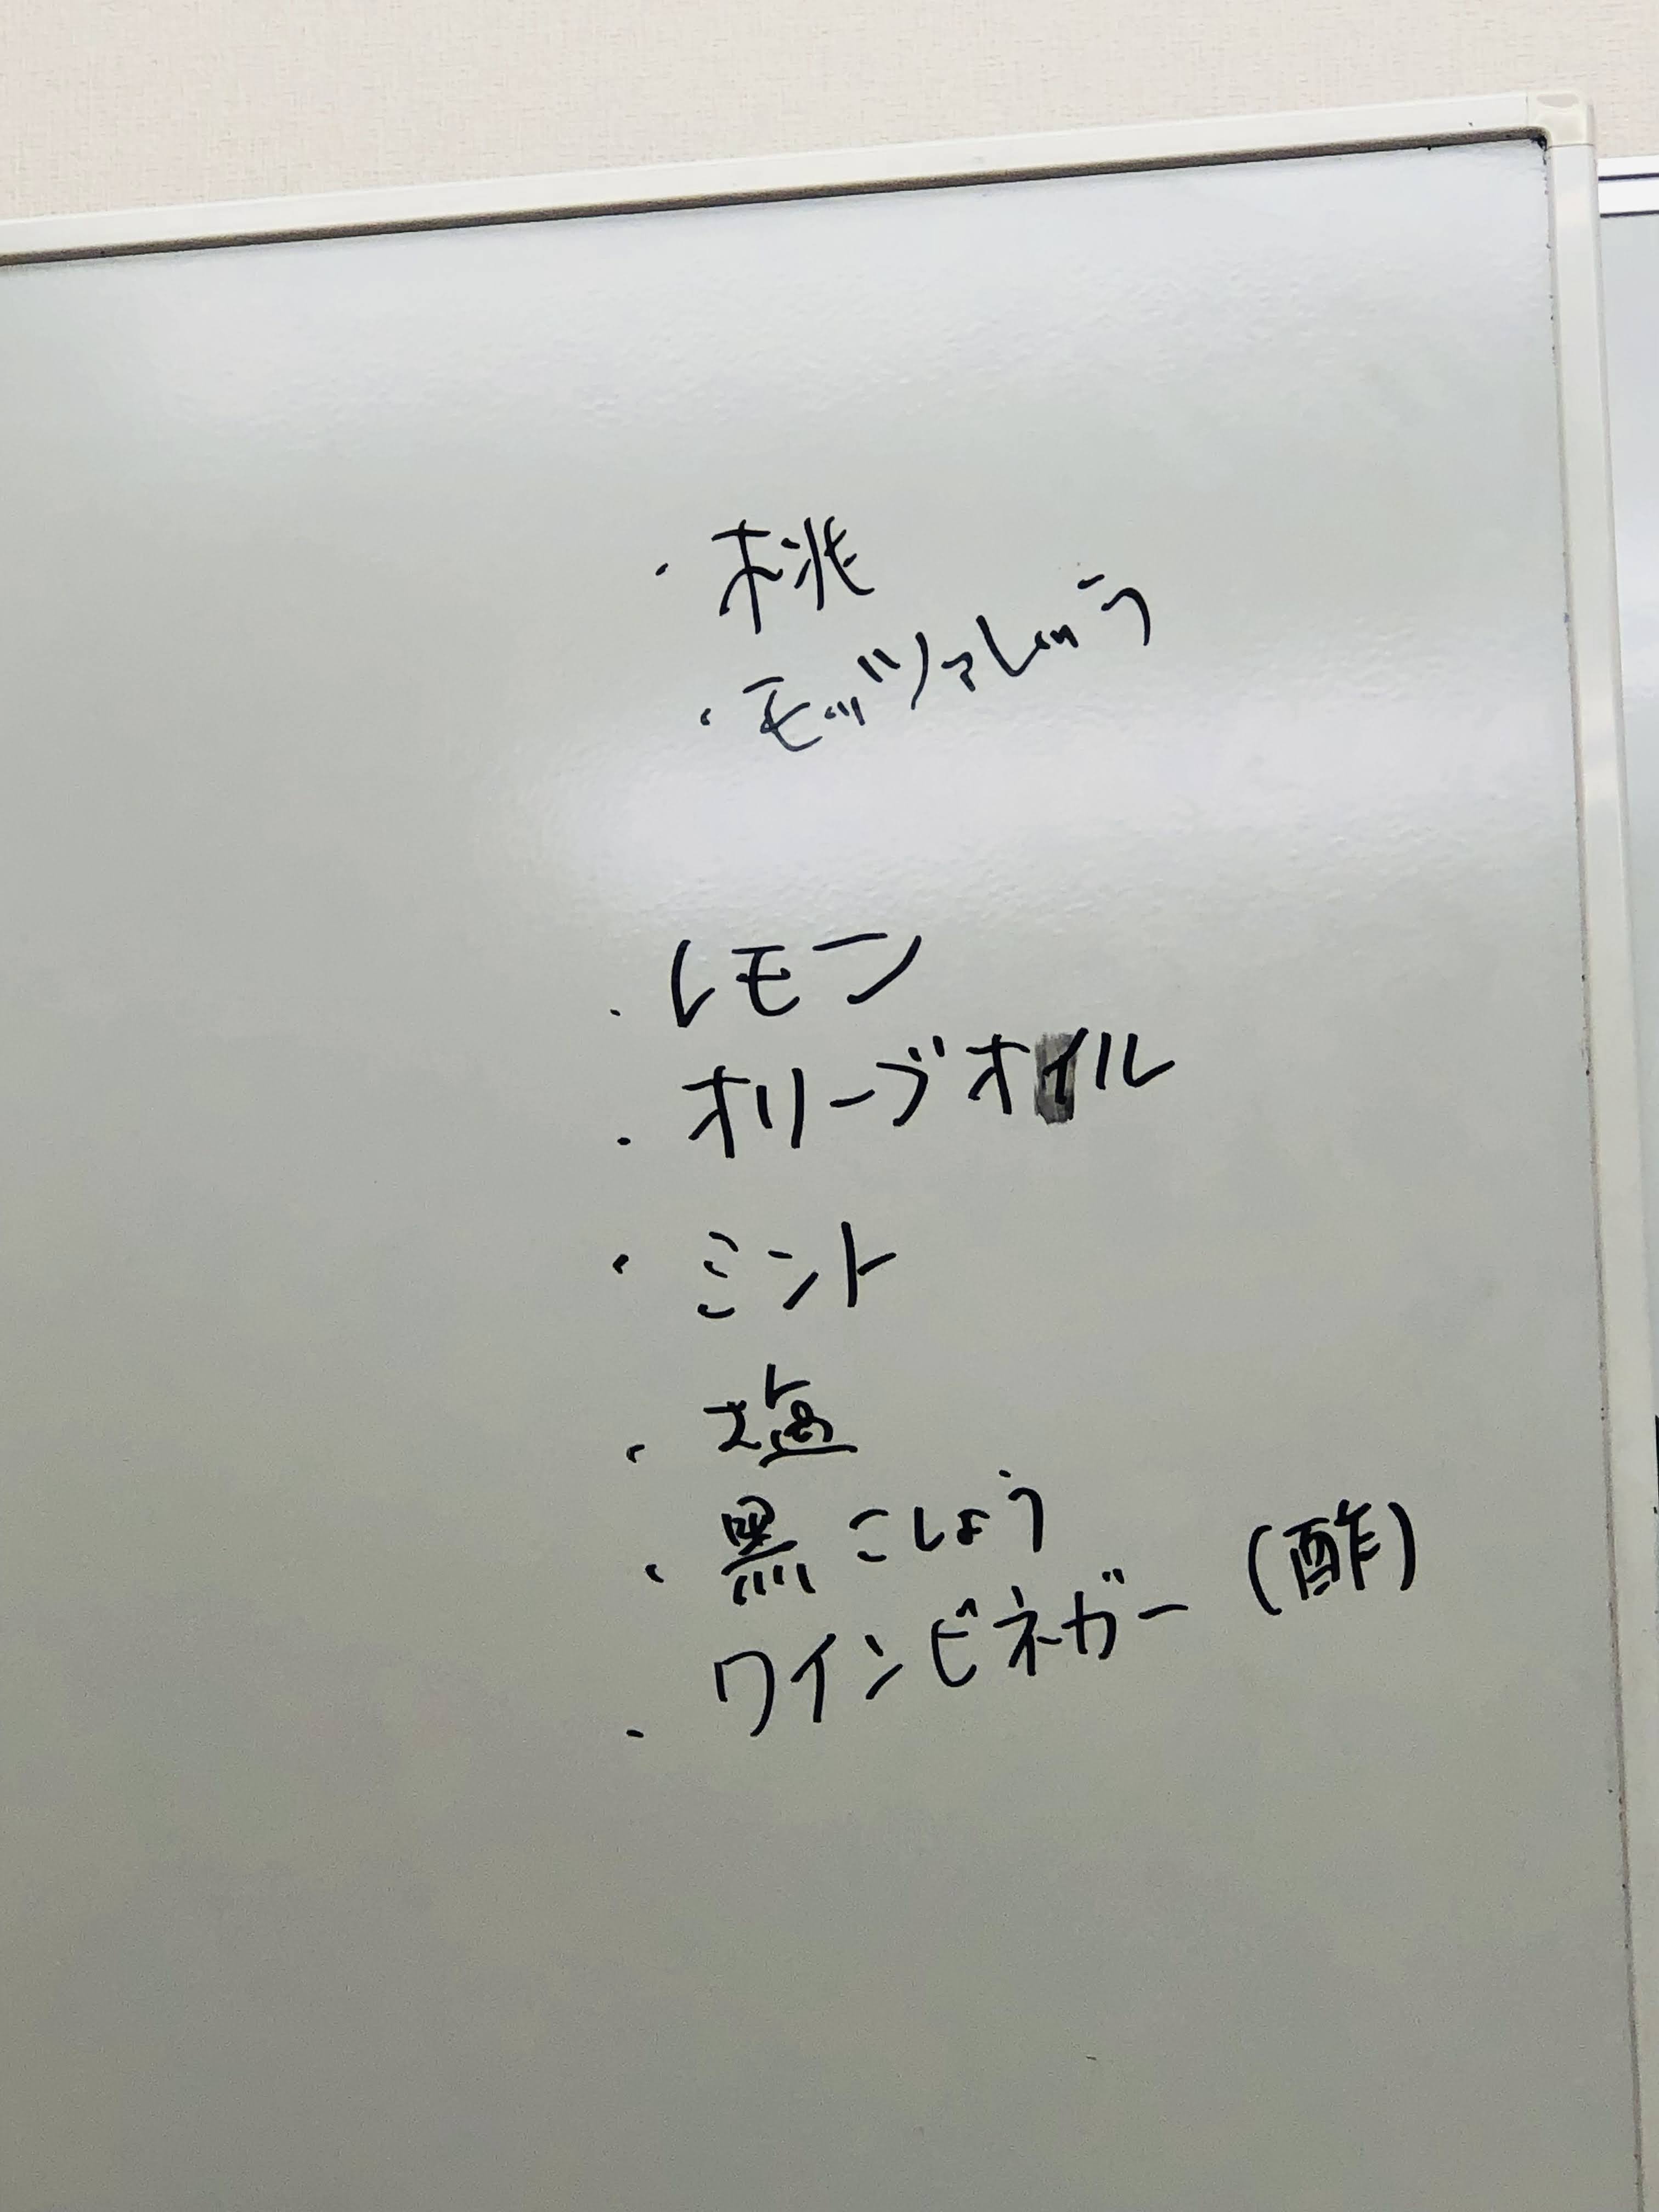 ・桃
・モッツァレラ
・レモン
・オリーブオイル
・ミント
・塩
・黒こしょう
・ワインビネガー (酢)